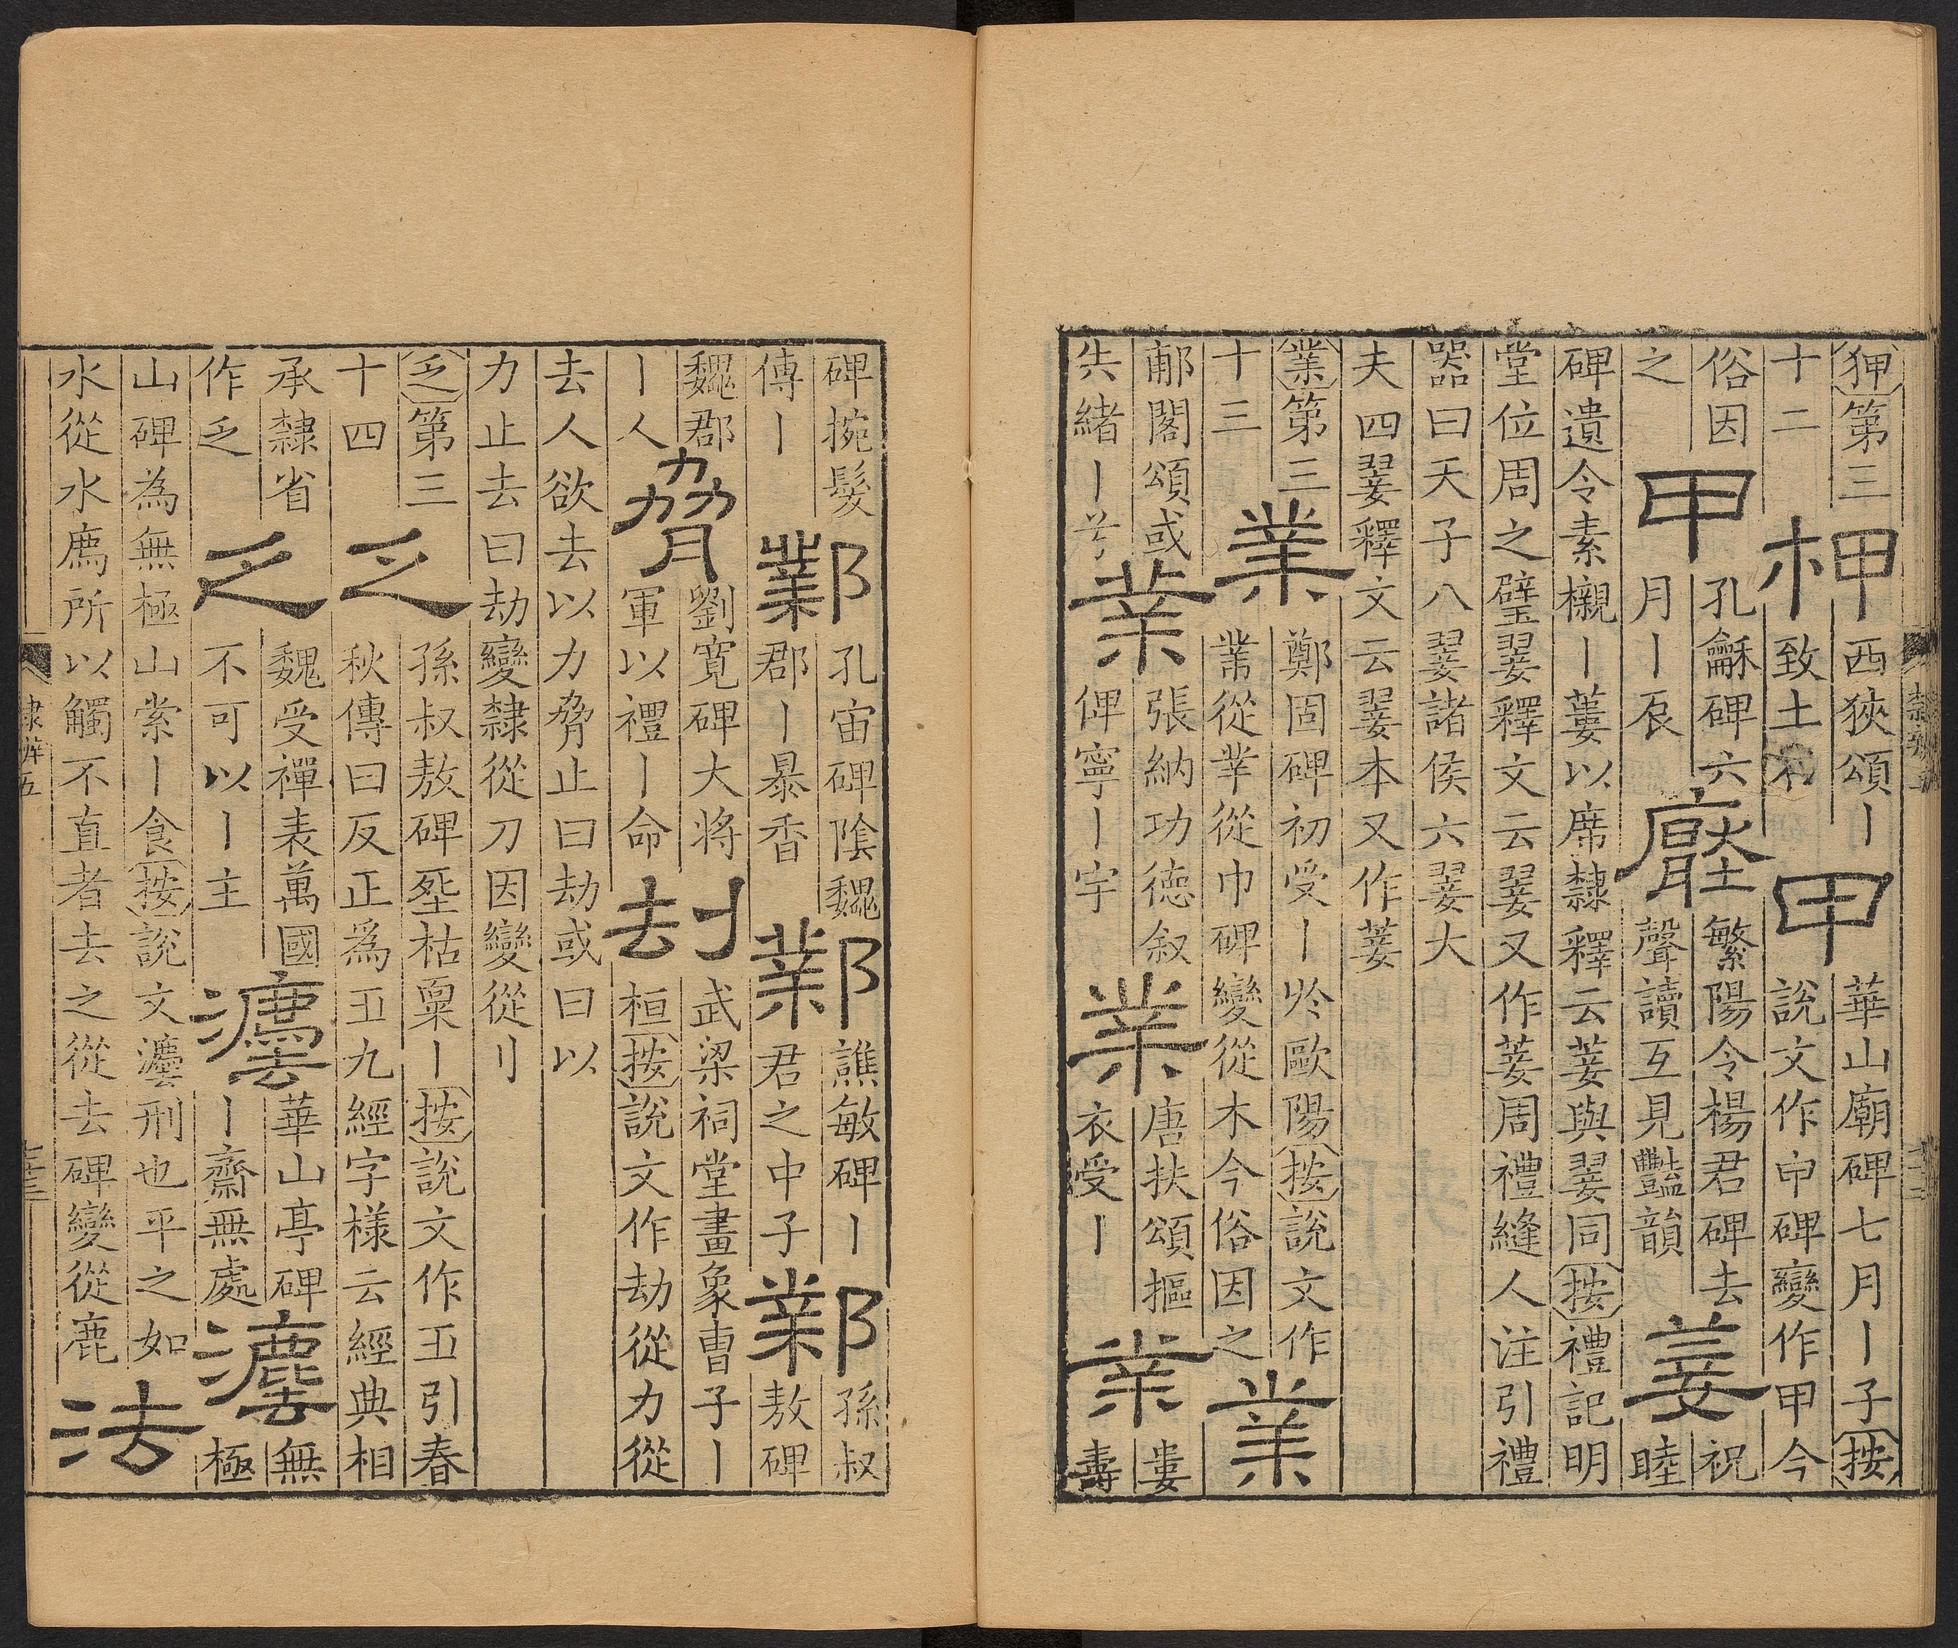 狎第三
十二
柙
西狹頌丨
致土
甲
華山廟碑七月丨子按
說文作𠇚碑變作甲今
俗因
之
甲
孔龢碑六
月丨辰
壓
繁陽令楊君碑去
聲讀互見豔韻
翣
祝
睦
碑遺令素櫬丨蔞以席隸釋云菨與翣同按禮記明
堂位周之璧翣釋文云翣又作菨周禮縫人注引禮
器曰天子八翣諸侯六翣大
夫四翣釋文云翣本又作菨
業第三
十三
業
鄭固碑初受丨於歐陽按說文作
業從丵從巾碑變從木今俗因之
業
郙閣頌或
失緒丨兮
業
張納功德叙
俾寧丨宇
業
唐扶頌摳
衣受丨
業
婁
壽
碑捥髮
傳丨
鄴
孔宙碑陰魏
郡丨暴香
鄴
譙敏碑丨
君之中子
鄴
孫叔
敖碑
魏郡
丨人
脅
劉寬碑大將
軍以禮丨命
刦
武梁祠堂畫象曹子丨
桓按說文作劫從力從
去人欲去以力脅止曰劫或曰以
力止去曰劫變隸從刀因變從刂
乏第三
十四
乏
孫叔敖碑枯稟丨按說文作𠄏引春
秋傳曰反正為𠄏九經字様云經典相
承隸省
作乏
乏
魏受禪表萬國
不可以丨主
灋
華山亭碑
丨齋無處
灋
無
極
山碑為無極山索丨食按說文灋刑也平之如
水從水廌所以觸不直者去之從去碑變從鹿
法
隸辨五